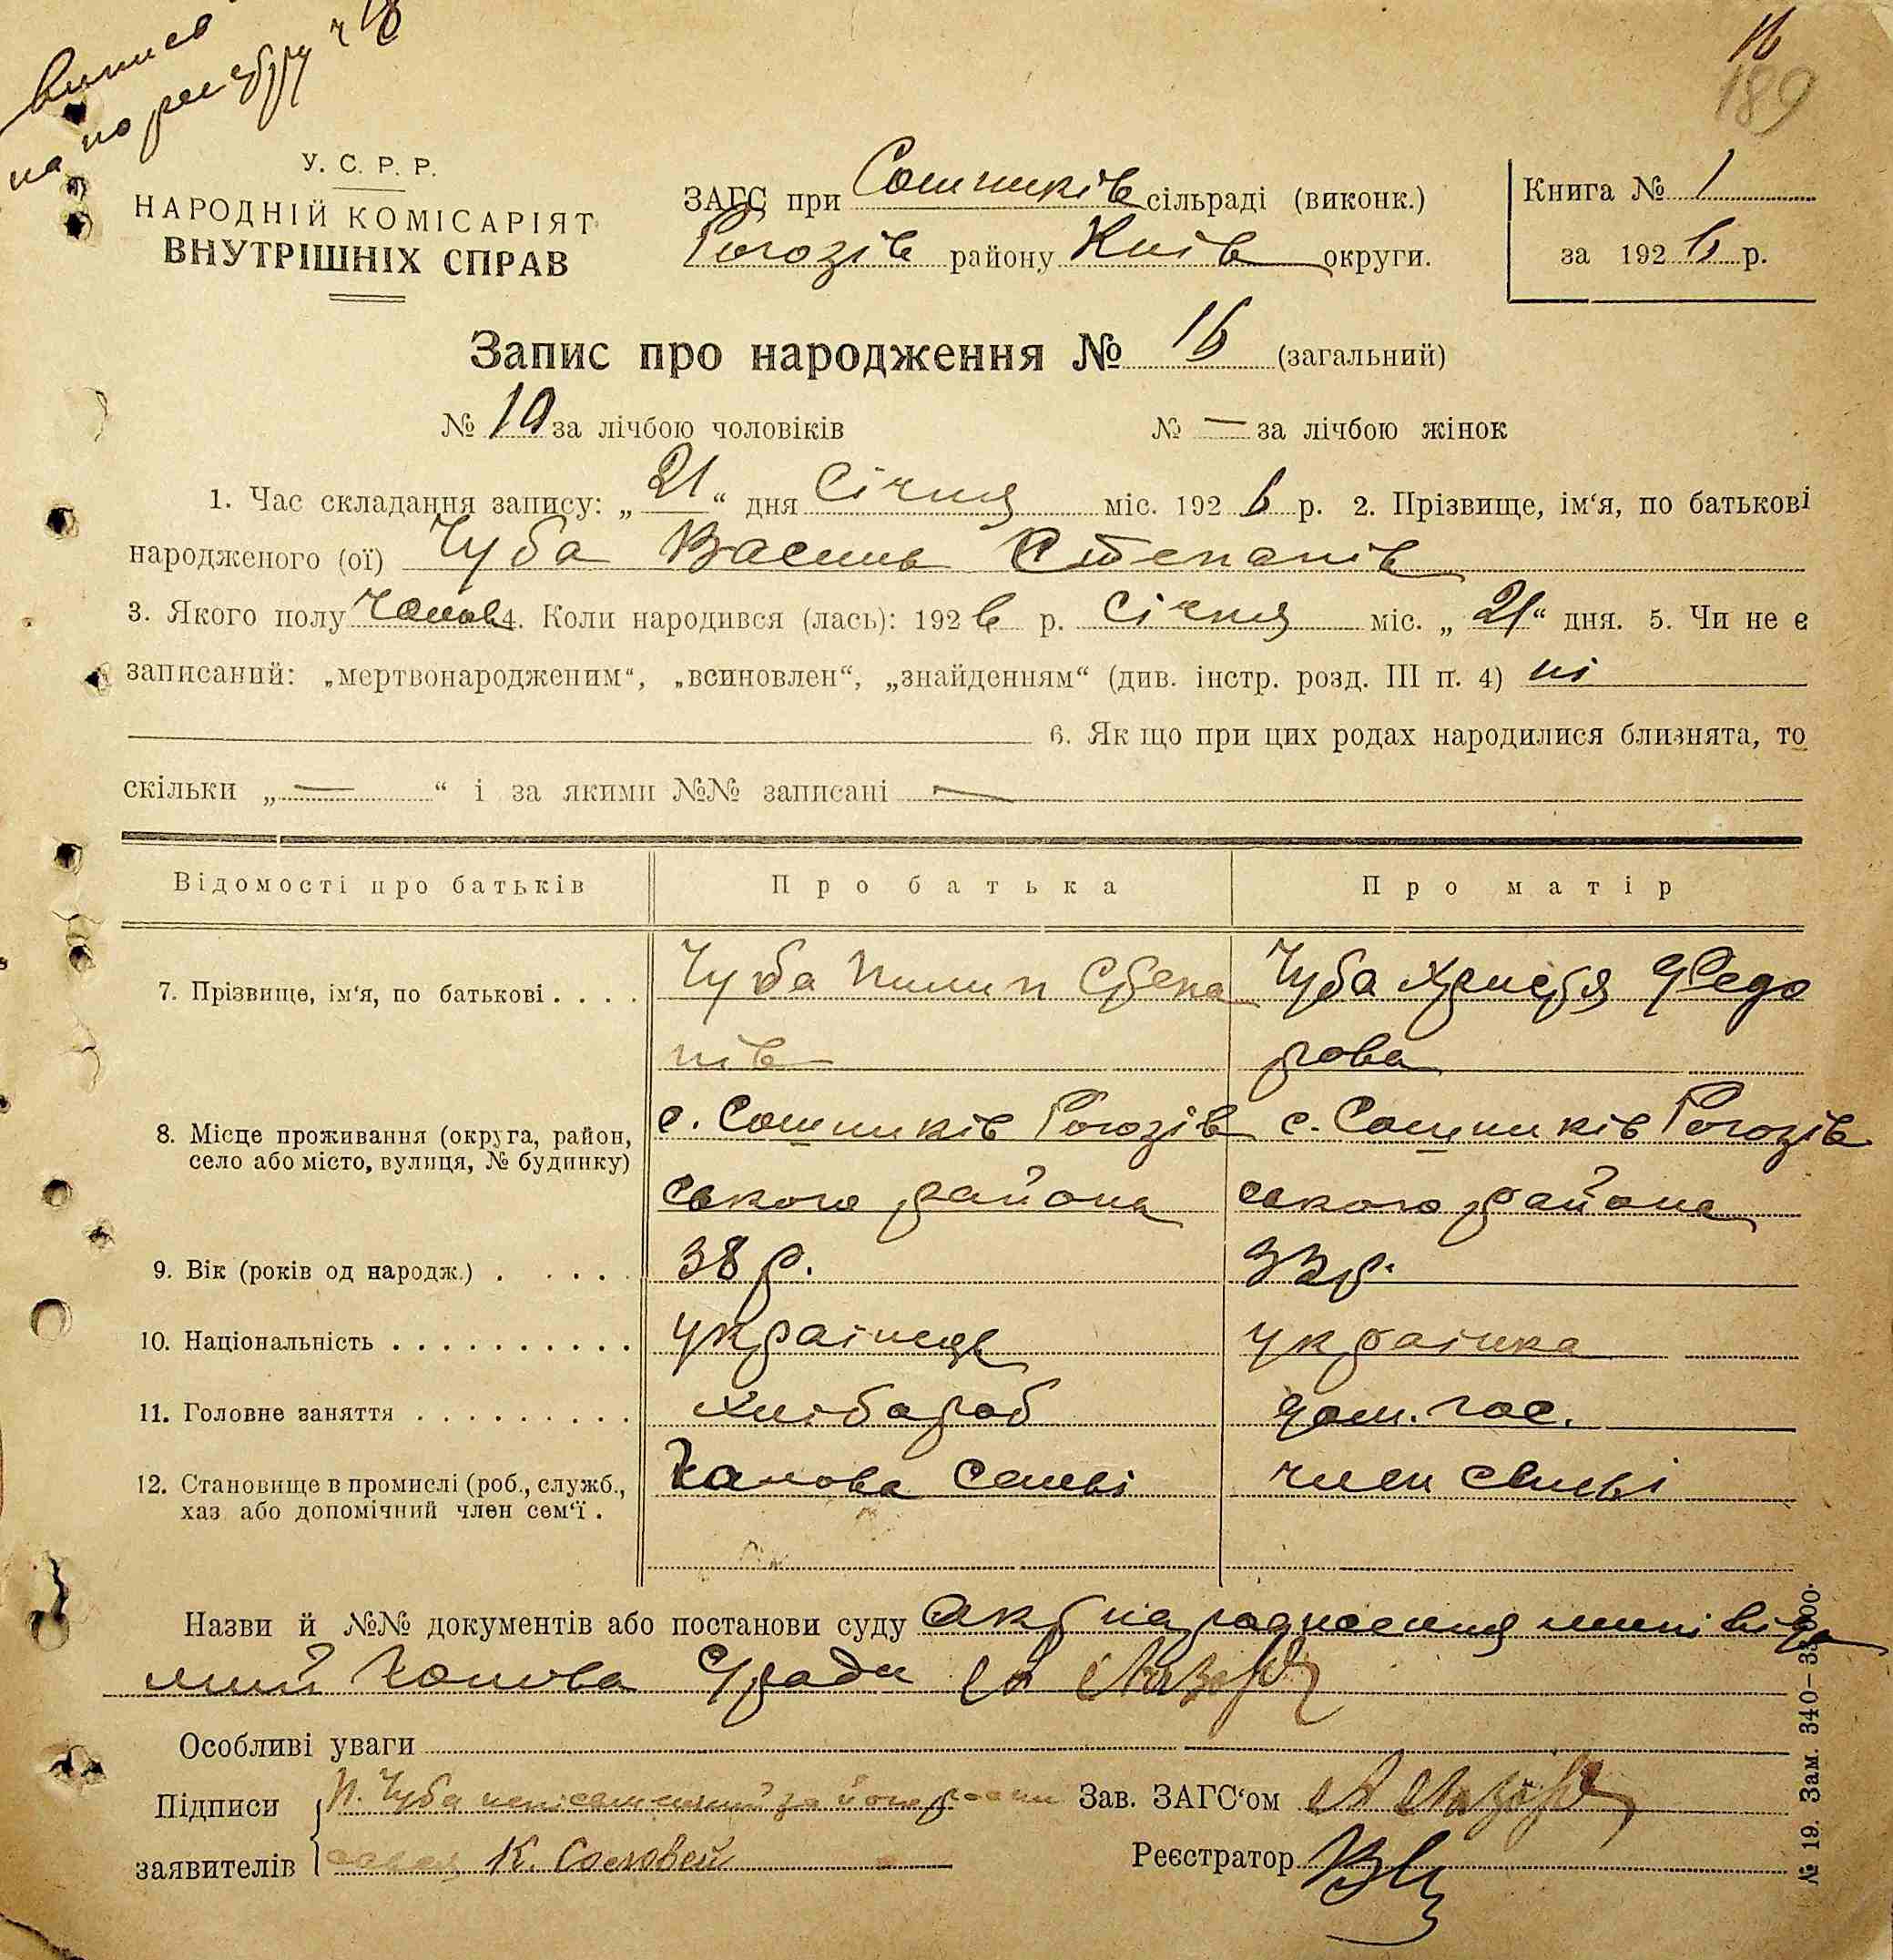 16
189
У. С. Р. Р.
НАРОДНІЙ КОМІСАРІЯТ
ВНУТРІШНІХ СПРАВ
ЗАГС при Сошників сільраді (виконк.)
Рогозів району Київ округи.
Книга № 1
за 1926 р.
Запис про народження № 16 (загальний)
№ 10 за лічбою чоловіків № — за лічбою жінок
1. Час складання запису: „21“ дня Січня міс. 1926 р. 2. Прізвище, ім‘я, по батькові
народженого (ої) Чуба Василь Степанів
3. Якого полу Чолов 4. Коли народився (лась): 1926 р. Січня міс. „21“ дня. 5. Чи не є
записаний: „мертвонародженим“, „всиновлен“, „знайденням“ (див. інстр. розд. III п. 4) ні
6. Як що при цих родах народилися близнята, то
скільки „—“ і за якими №№ записані —
Відомості про батьків Про батька Про матір
7. Прізвище, ім‘я, по батькові . . . . Чуба Пилип Степа Чуба Христя Федо
нів рова
8. Місце проживання (округа, район, с. Сошників Рогозів с. Сошників Рогозів
село або місто, вулиця, № будинку)
ського района ського района
9. Вік (років од народж.) . . . . . 38 р. 33 р.
10. Національність . . . . . . . . . . українець українка
11. Головне заняття . . . . . . . . . . Хлібороб дом. гос.
12. Становище в промислі (роб., служб., Голова семьі член семьі
хаз або допомічний член сем‘ї .
Назви й №№ документів або постанови суду
Голова С/ради
Особливі уваги
Підписи П. Чуба Зав. ЗАГС‘ом
заявителів К. Соловей Реєстратор
№ 19. Зам. 340—35000.